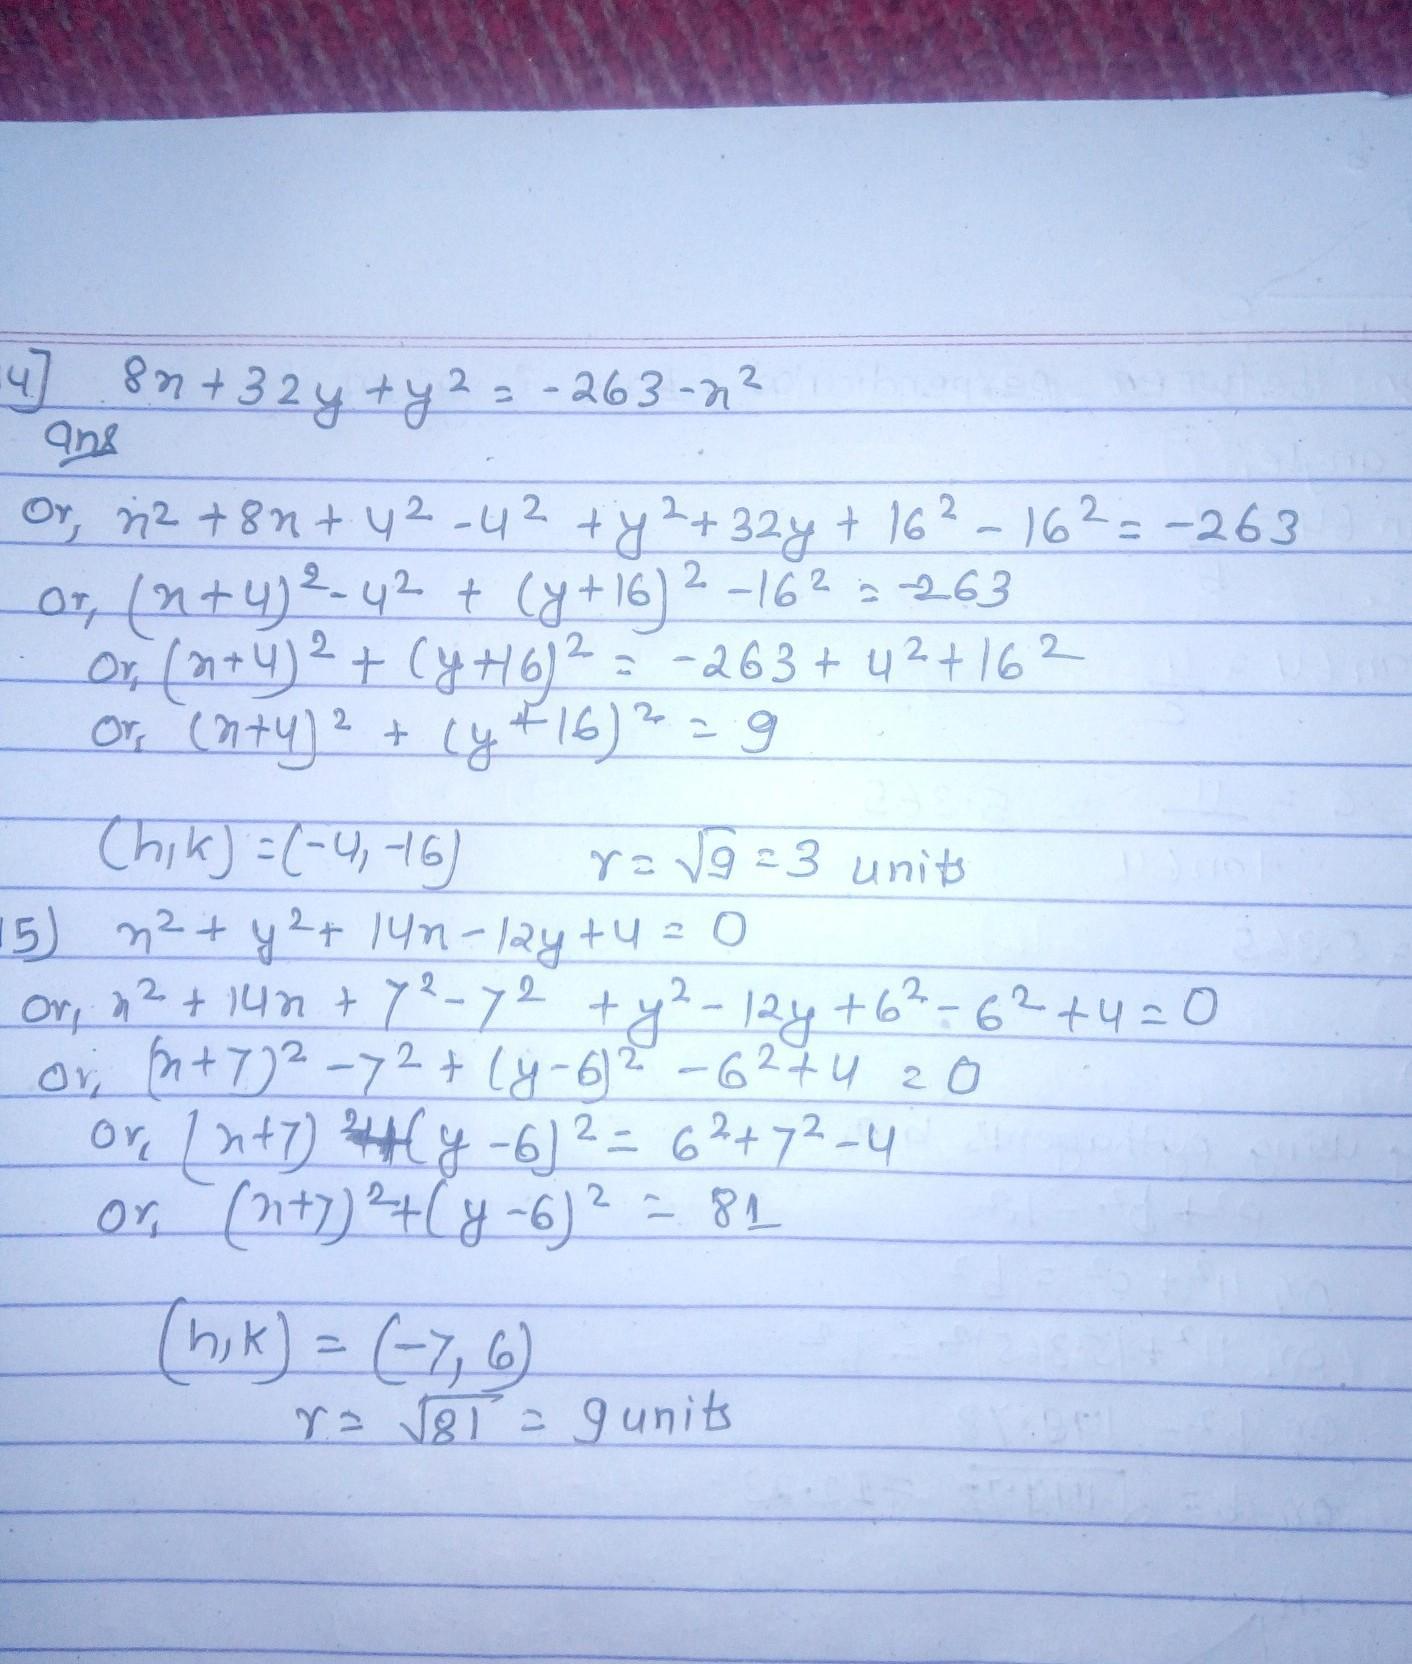 4] 8x + 32y + y² = -263 - x²
ans
Or, x² + 8x + 4² - 4² + y² + 32y + 16² - 16² = -263
or, (x+4)² - 4² + (y+16)² - 16² = -263
Or, (x+4)² + (y+16)² = -263 + 4² + 16²
Or, (x+4)² + (y+16)² = 9
(h,k) = (-4, -16) r = √9 = 3 units
15) x² + y² + 14x - 12y + 4 = 0
or, x² + 14x + 7² - 7² + y² - 12y + 6² - 6² + 4 = 0
or, (x+7)² - 7² + (y-6)² - 6² + 4 = 0
or, (x+7)² + (y-6)² = 6² + 7² - 4
or, (x+7)² + (y-6)² = 81
(h,k) = (-7, 6)
r = √81 = 9 units